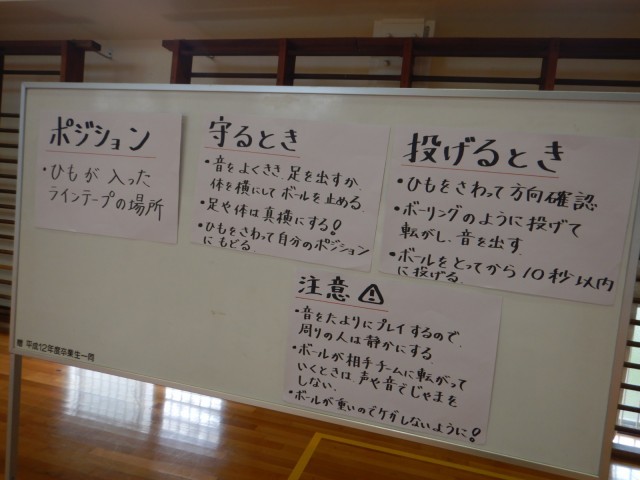 ポジション
・ひもが入った
ラインテープの場所
守るとき
・音をよくきき、足を出すか、
体を横にしてボールを止める。
・足や体は真横にする!
・ひもをさわって自分のポジション
にもどる。
投げるとき
・ひもをさわって方向確認
・ボーリングのように投げて
転がし、音を出す
・ボールをとってから10秒以内
に投げる。
注意⚠
・音をたよりにプレイするので、
周りの人は静かにする
・ボールが相手チームに転がって
いくときは、声や音でじゃまを
しない。
・ボールが重いのでケガしないように!
贈 平成12年度卒業生一同